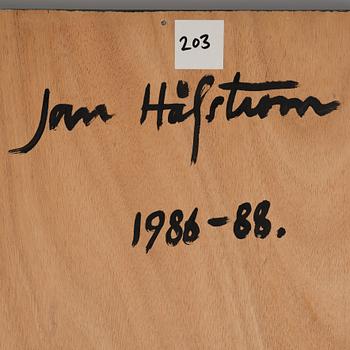 203
Jan Håfström
1986-88.